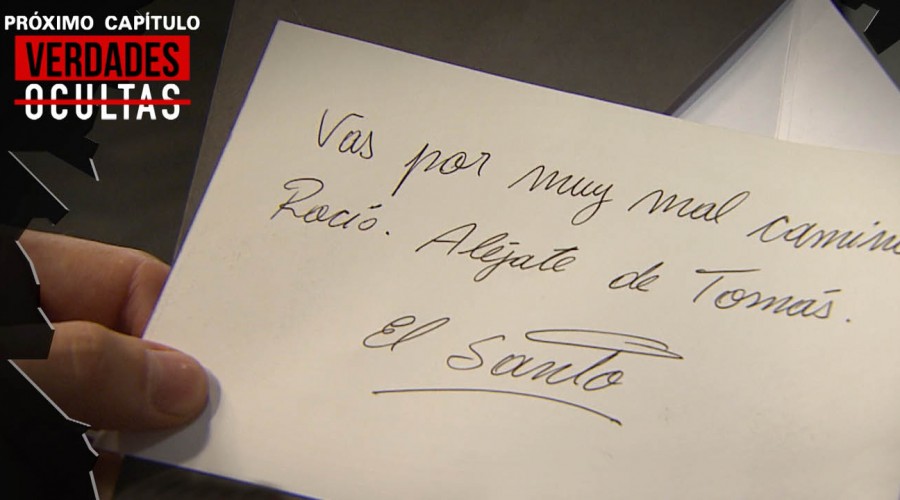 PRÓXIMO CAPÍTULO
VERDADES
OCULTAS
Vas por muy mal camino
Rocío. Aléjate de Tomás.
El Santo